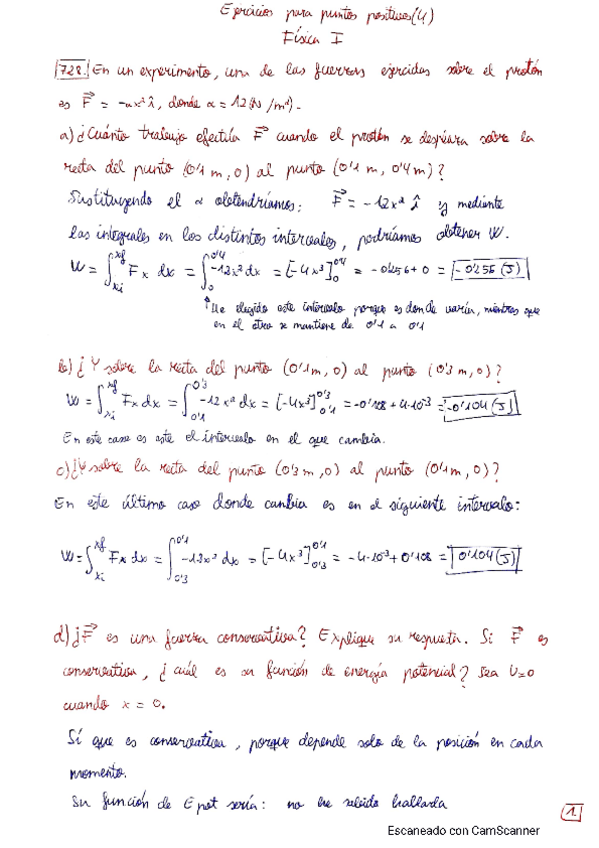 Ejercicios para puntos positivos (4)
Física I
728. En un experimento, una de las fuerzas ejercidas sobre el protón
es F⃗ = -αx² î, donde α = 12 (N/m²).
a) ¿Cuánto trabajo efectúa F⃗ cuando el protón se desplaza sobre la
recta del punto (0'1 m, 0) al punto (0'1 m, 0'4 m)?
Sustituyendo el α obtendríamos: F⃗ = -12x² î y mediante
las integrales en los distintos intervalos, podríamos obtener W.
W = ∫xi^xf Fx dx = ∫0^0'4 -12x² dx = [-4x³]0^0'4 = -0'256 + 0 = -0'256 (J)
↑ He elegido este intervalo porque es donde varía, mientras que
en el otro se mantiene de 0'1 a 0'1
b) ¿Y sobre la recta del punto (0'1 m, 0) al punto (0'3 m, 0)?
W = ∫xi^xf Fx dx = ∫0'1^0'3 -12x² dx = [-4x³]0'1^0'3 = -0'108 + 4·10⁻³ = -0'104 (J)
En este caso es este el intervalo en el que cambia.
c) ¿Y sobre la recta del punto (0'3 m, 0) al punto (0'1 m, 0)?
En este último caso donde cambia es en el siguiente intervalo:
W = ∫xi^xf Fx dx = ∫0'3^0'1 -12x² dx = [-4x³]0'3^0'1 = -4·10⁻³ + 0'108 = 0'104 (J)
d) ¿F⃗ es una fuerza conservativa? Explique su respuesta. Si F⃗ es
conservativa, ¿cuál es su función de energía potencial? Sea U=0
cuando x = 0.
Sí que es conservativa, porque depende solo de la posición en cada
momento.
Su función de Epot sería: no he sabido hallarla
1.
Escaneado con CamScanner